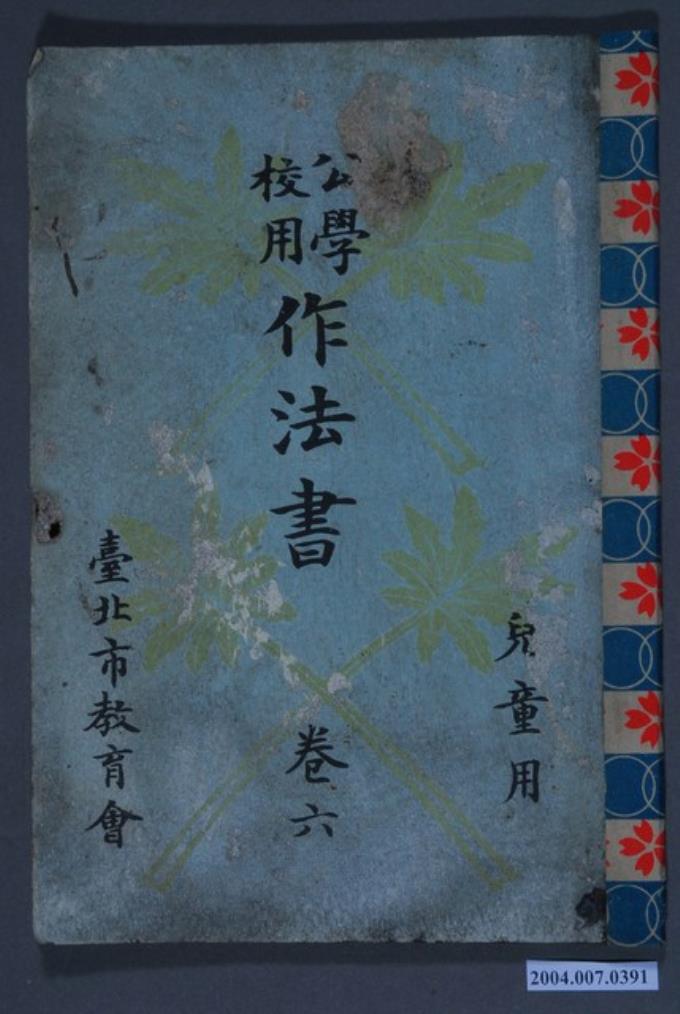 兒童用
公學校用
作法書
卷六
臺北市教育會
2004.007.0391